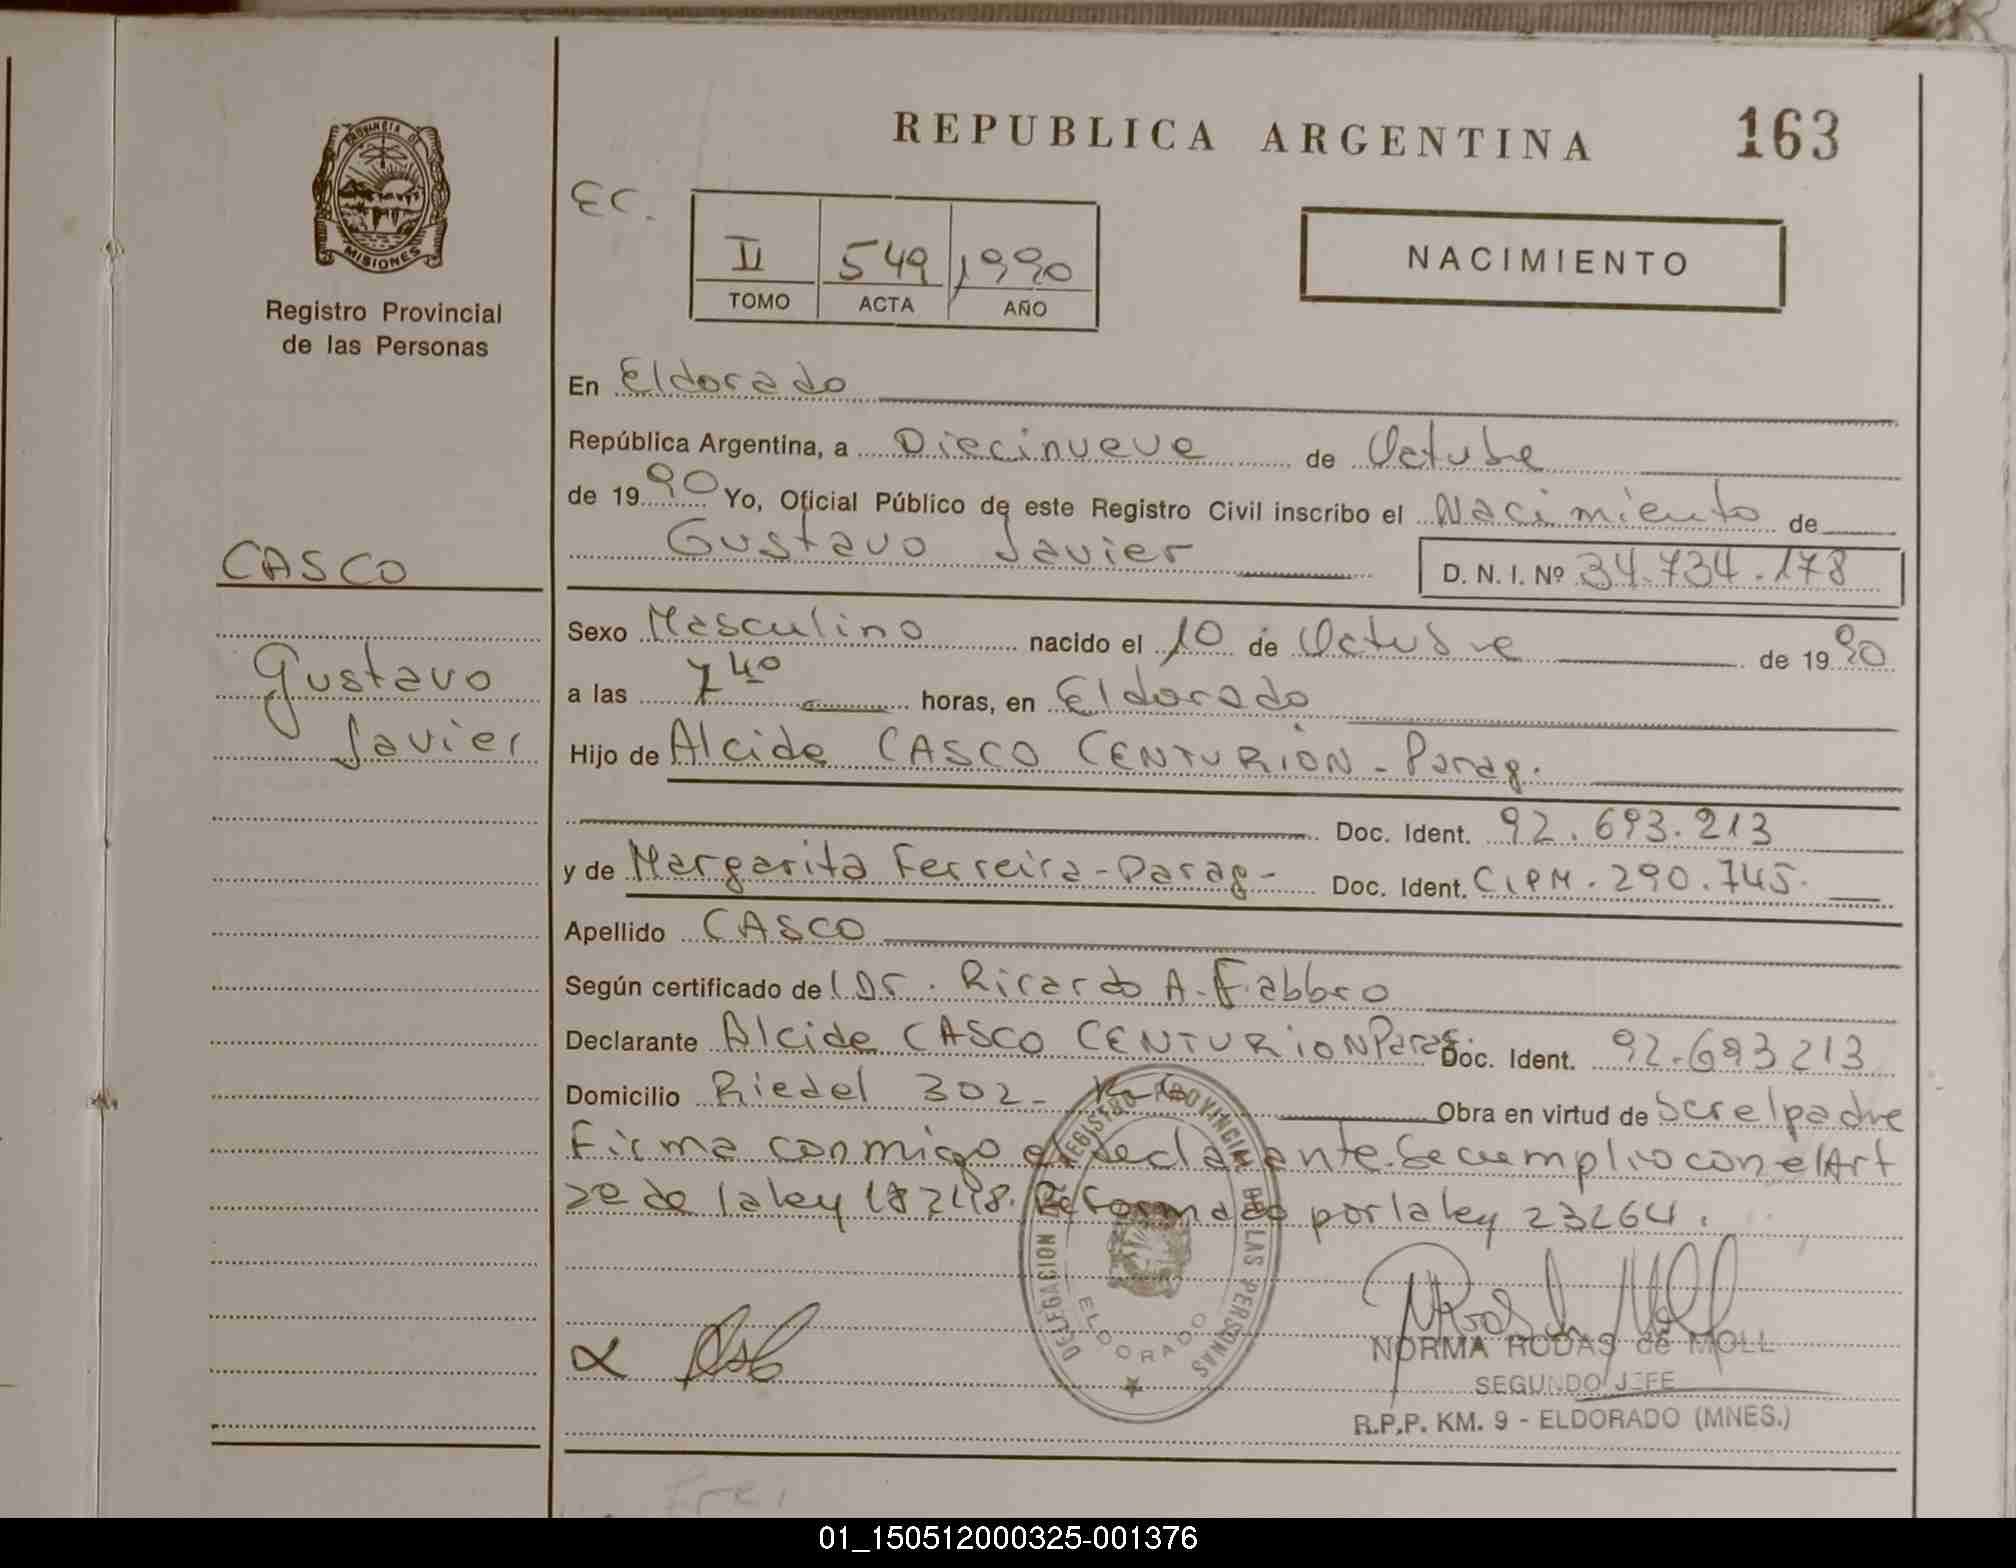 REPUBLICA ARGENTINA
163
PROVINCIA D
MISIONES
Registro Provincial
de las Personas
EC.
II 549 1990
TOMO ACTA AÑO
NACIMIENTO
CASCO
Gustavo
Javier
En Eldorado
República Argentina, a Diecinueve de Octubre
de 1990 Yo, Oficial Público de este Registro Civil inscribo el Nacimiento de
Gustavo Javier D. N. I. Nº 34.734.178
Sexo Masculino nacido el 10 de Octubre de 1990
a las 7 40 horas, en Eldorado
Hijo de Alcide CASCO CENTURION - Parag.
Doc. Ident. 92.693.213
y de Margarita Ferreira - Parag - Doc. Ident. CIPM. 290.745.
Apellido CASCO
Según certificado del Dr. Ricardo A. Fabbro
Declarante Alcide CASCO CENTURION Parag. Doc. Ident. 92.693213
Domicilio Riedel 302 - Obra en virtud de ser el padre
Firma conmigo el declarante. Se cumplio con el Art
2º de la ley 18248. Reformado por la ley 23264.
DELEGACION DEL REGISTRO PROVINCIAL DE LAS PERSONAS
ELDORADO
NORMA RODAS de MOLL
SEGUNDO JEFE
R.P.P. KM. 9 - ELDORADO (MNES.)
01_150512000325-001376